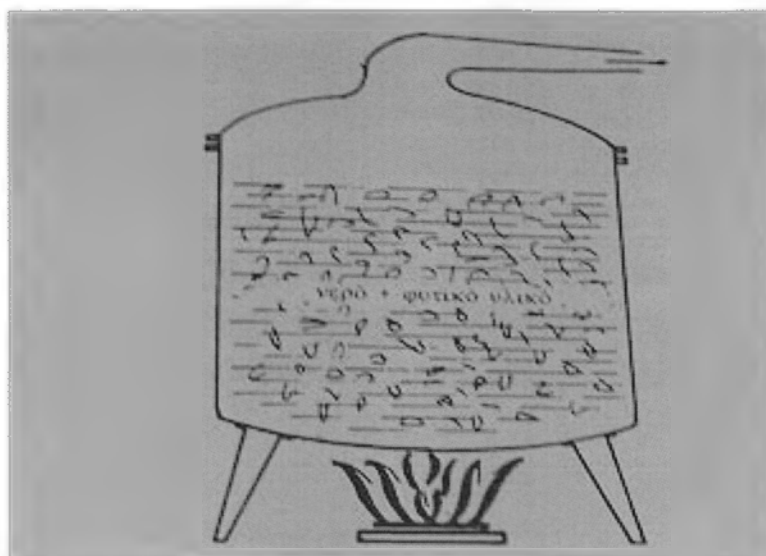 νερό + φυτικό υλικό